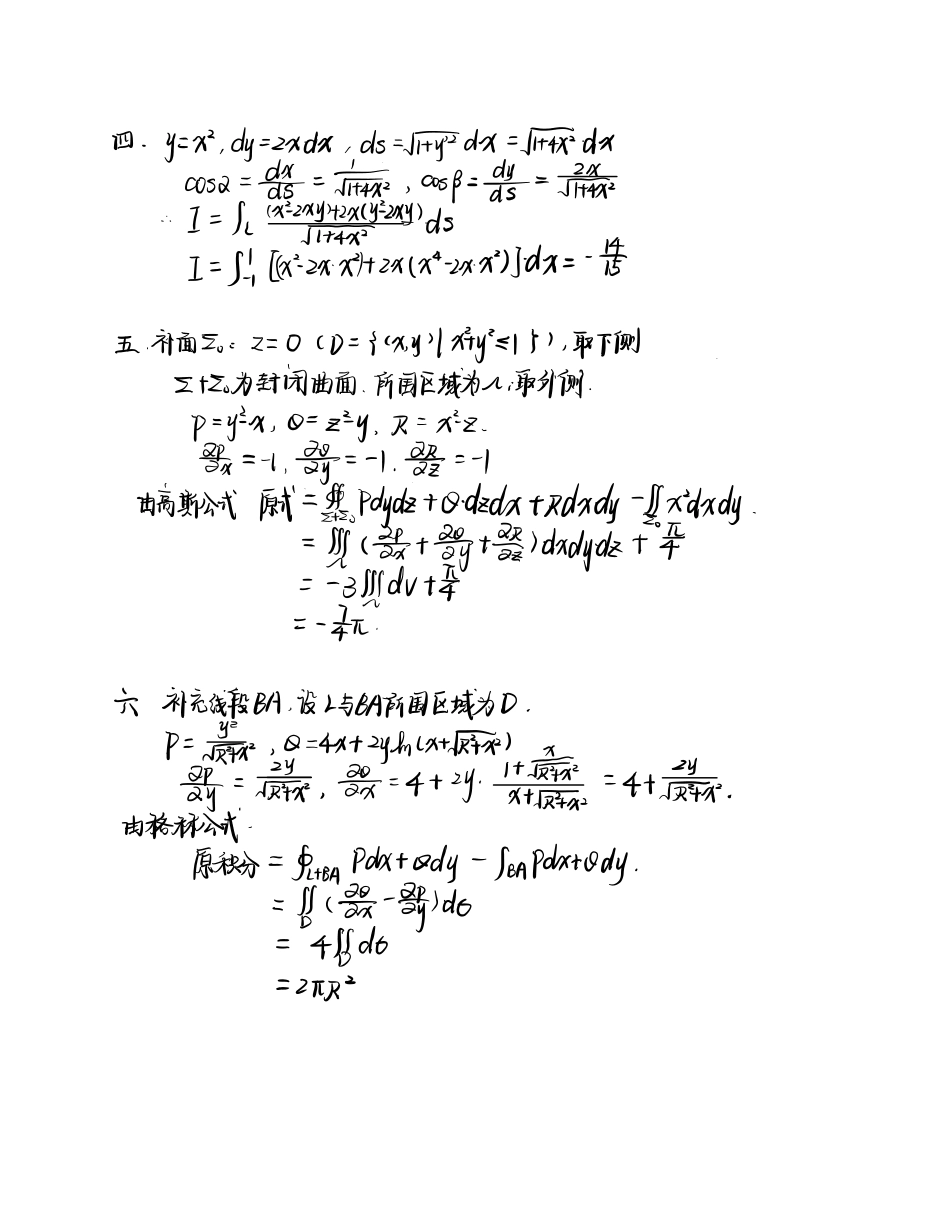 四. y=x², dy=2xdx, ds=√(1+y'²) dx = √(1+4x²) dx
cosα = dx/ds = 1/√(1+4x²), cosβ = dy/ds = 2x/√(1+4x²)
∴ I = ∫_L ((x²-2xy)+2x(y²-2xy))/√(1+4x²) ds
I = ∫_{-1}^{1} [(x²-2x·x²)+2x(x⁴-2x·x²)]·dx = -14/15
五. 补面Σ₀: z=0 (D={(x,y)|x²+y²≤1}), 取下侧
Σ+Σ₀为封闭曲面. 所围区域为Ω, 取外侧.
P=y²-x, Q=z²-y, R=x²-z.
∂P/∂x = -1, ∂Q/∂y = -1, ∂R/∂z = -1
由高斯公式 原式 = ∯_{Σ+Σ₀} Pdydz+Q·dzdx+Rdxdy - ∬_{Σ₀} x²dxdy.
= ∭_Ω (∂P/∂x + ∂Q/∂y + ∂R/∂z) dxdydz + π/4
= -3∭_Ω dv + π/4
= -7/4 π.
六 补充线段BA, 设L与BA所围区域为D.
P = y²/√(R²+x²), Q=4x+2yln(x+√(R²+x²))
∂P/∂y = 2y/√(R²+x²), ∂Q/∂x = 4+2y· (1+x/√(R²+x²))/(x+√(R²+x²)) = 4+ 2y/√(R²+x²).
由格林公式.
原积分 = ∮_{L+BA} Pdx+Qdy - ∫_{BA} Pdx+Qdy.
= ∬_D (∂Q/∂x - ∂P/∂y)dσ
= 4∬_D dσ
= 2πR²